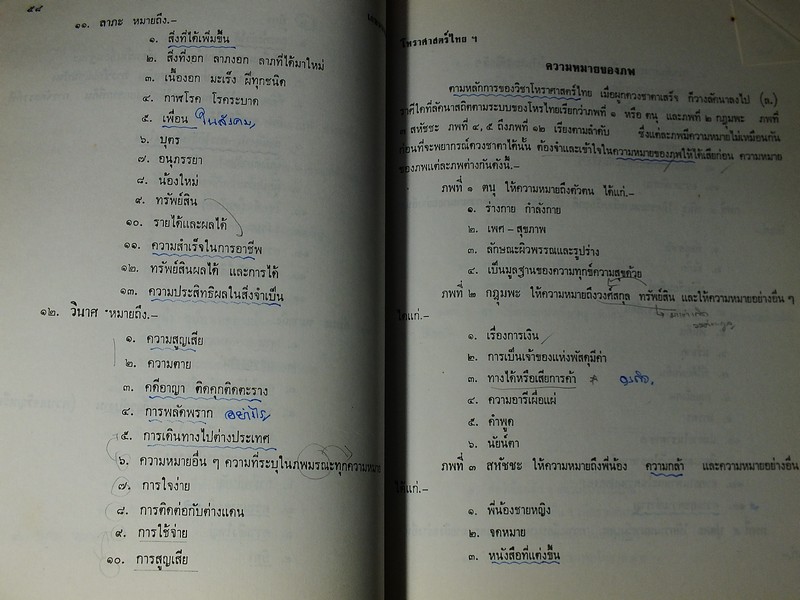 ๕๘
๑๑. ลาภะ หมายถึง.-
๑. สิ่งที่ได้เพิ่มขึ้น
๒. สิ่งที่งอก ลาภงอก ลาภที่ได้มาใหม่
๓. เนื้องอก มะเร็ง ฝีทุกชนิด
๔. กาฬโรค โรคระบาด
๕. เพื่อน ในสังคม
๖. บุตร
๗. อนุภรรยา
๘. น้องใหม่
๙. ทรัพย์สิน
๑๐. รายได้และผลได้
๑๑. ความสำเร็จในการอาชีพ
๑๒. ทรัพย์สินผลได้ และการได้
๑๓. ความประสิทธิผลในสิ่งจำเป็น
๑๒. วินาศ หมายถึง.-
๑. ความสูญเสีย
๒. ความตาย
๓. คดีอาญา ติดคุกติดตะราง
๔. การพลัดพราก
๕. การเดินทางไปต่างประเทศ
๖. ความหมายอื่น ๆ ความที่ระบุในภพมรณะทุกความหมาย
๗. การใจง่าย
๘. การติดต่อกับต่างแดน
๙. การใช้จ่าย
๑๐. การสูญเสีย
โหราศาสตร์ไทย ฯ
ความหมายของภพ
ตามหลักการของวิชาโหราศาสตร์ไทย เมื่อผูกดวงชาตาเสร็จ ก็วางลัคนาลงไป (ล.)
ราศีใดที่ลัคนาสถิตตามระบบของโหรไทยเรียกว่าภพที่ ๑ หรือ ตนุ และภพที่ ๒ กฎุมพะ ภพที่
๓ สหัชชะ ภพที่ ๔, ๕ ถึงภพที่ ๑๒ เรียงตามลำดับ ซึ่งแต่ละภพมีความหมายไม่เหมือนกัน
ก่อนที่จะพยากรณ์ดวงชาตาได้นั้น ต้องจำและเข้าใจในความหมายของภพให้ได้เสียก่อน ความหมาย
ของภพแต่ละภพต่างกันดังนี้.-
ภพที่ ๑ ตนุ ให้ความหมายถึงตัวตน ได้แก่.-
๑. ร่างกาย กำลังกาย
๒. เพศ - สุขภาพ
๓. ลักษณะผิวพรรณและรูปร่าง
๔. เป็นมูลฐานของความทุกข์ความสุขด้วย
ภพที่ ๒ กฎุมพะ ให้ความหมายถึงวงศ์สกุล ทรัพย์สิน และให้ความหมายอย่างอื่น ๆ
ได้แก่.-
๑. เรื่องการเงิน
๒. การเป็นเจ้าของแห่งพัสดุมีค่า
๓. ทางได้หรือเสียการค้า
๔. ความอารีเผื่อแผ่
๕. คำพูด
๖. นัยน์ตา
ภพที่ ๓ สหัชชะ ให้ความหมายถึงพี่น้อง ความกล้า และความหมายอย่างอื่น
ได้แก่.-
๑. พี่น้องชายหญิง
๒. จดหมาย
๓. หนังสือที่แต่งขึ้น